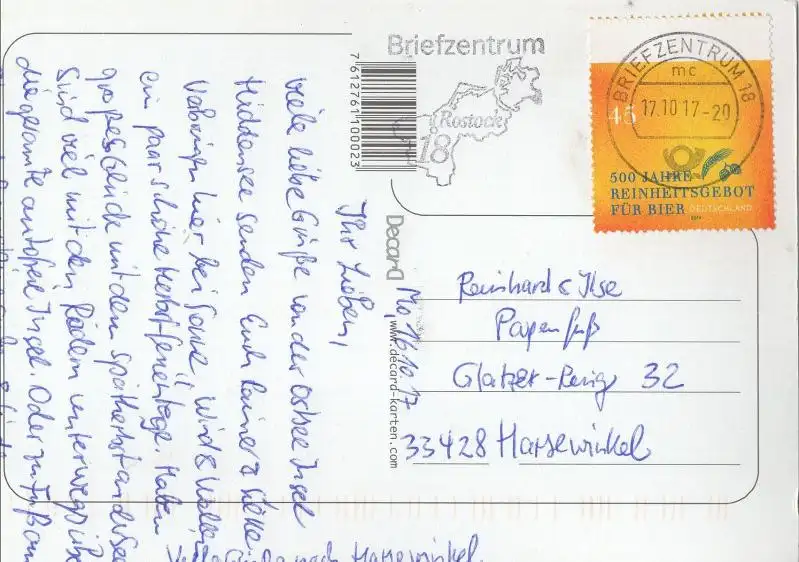 Briefzentrum
7612761100023
Rostock
18
BRIEFZENTRUM 18
mc
17.10.17-20
45
500 JAHRE
REINHEITSGEBOT
FÜR BIER DEUTSCHLAND
Decard
www.decard-karten.com
Mo, 16.10.17
Ihr Lieben,
viele liebe Grüße von der Ostsee Insel
Hiddensee senden Euch Rainer & Silke
Verbringen hier bei Sonne, Wind & Wellen
ein paar schöne Herbstferientage. Haben
großes Glück mit dem Spätherbst an der See
Sind viel mit den Rädern unterwegs
die gesamte autofreie Insel. Oder zu Fuß am
nach Harsewinkel.
Reinhard & Ilse
Papenfuß
Glatzer-Ring 32
33428 Harsewinkel